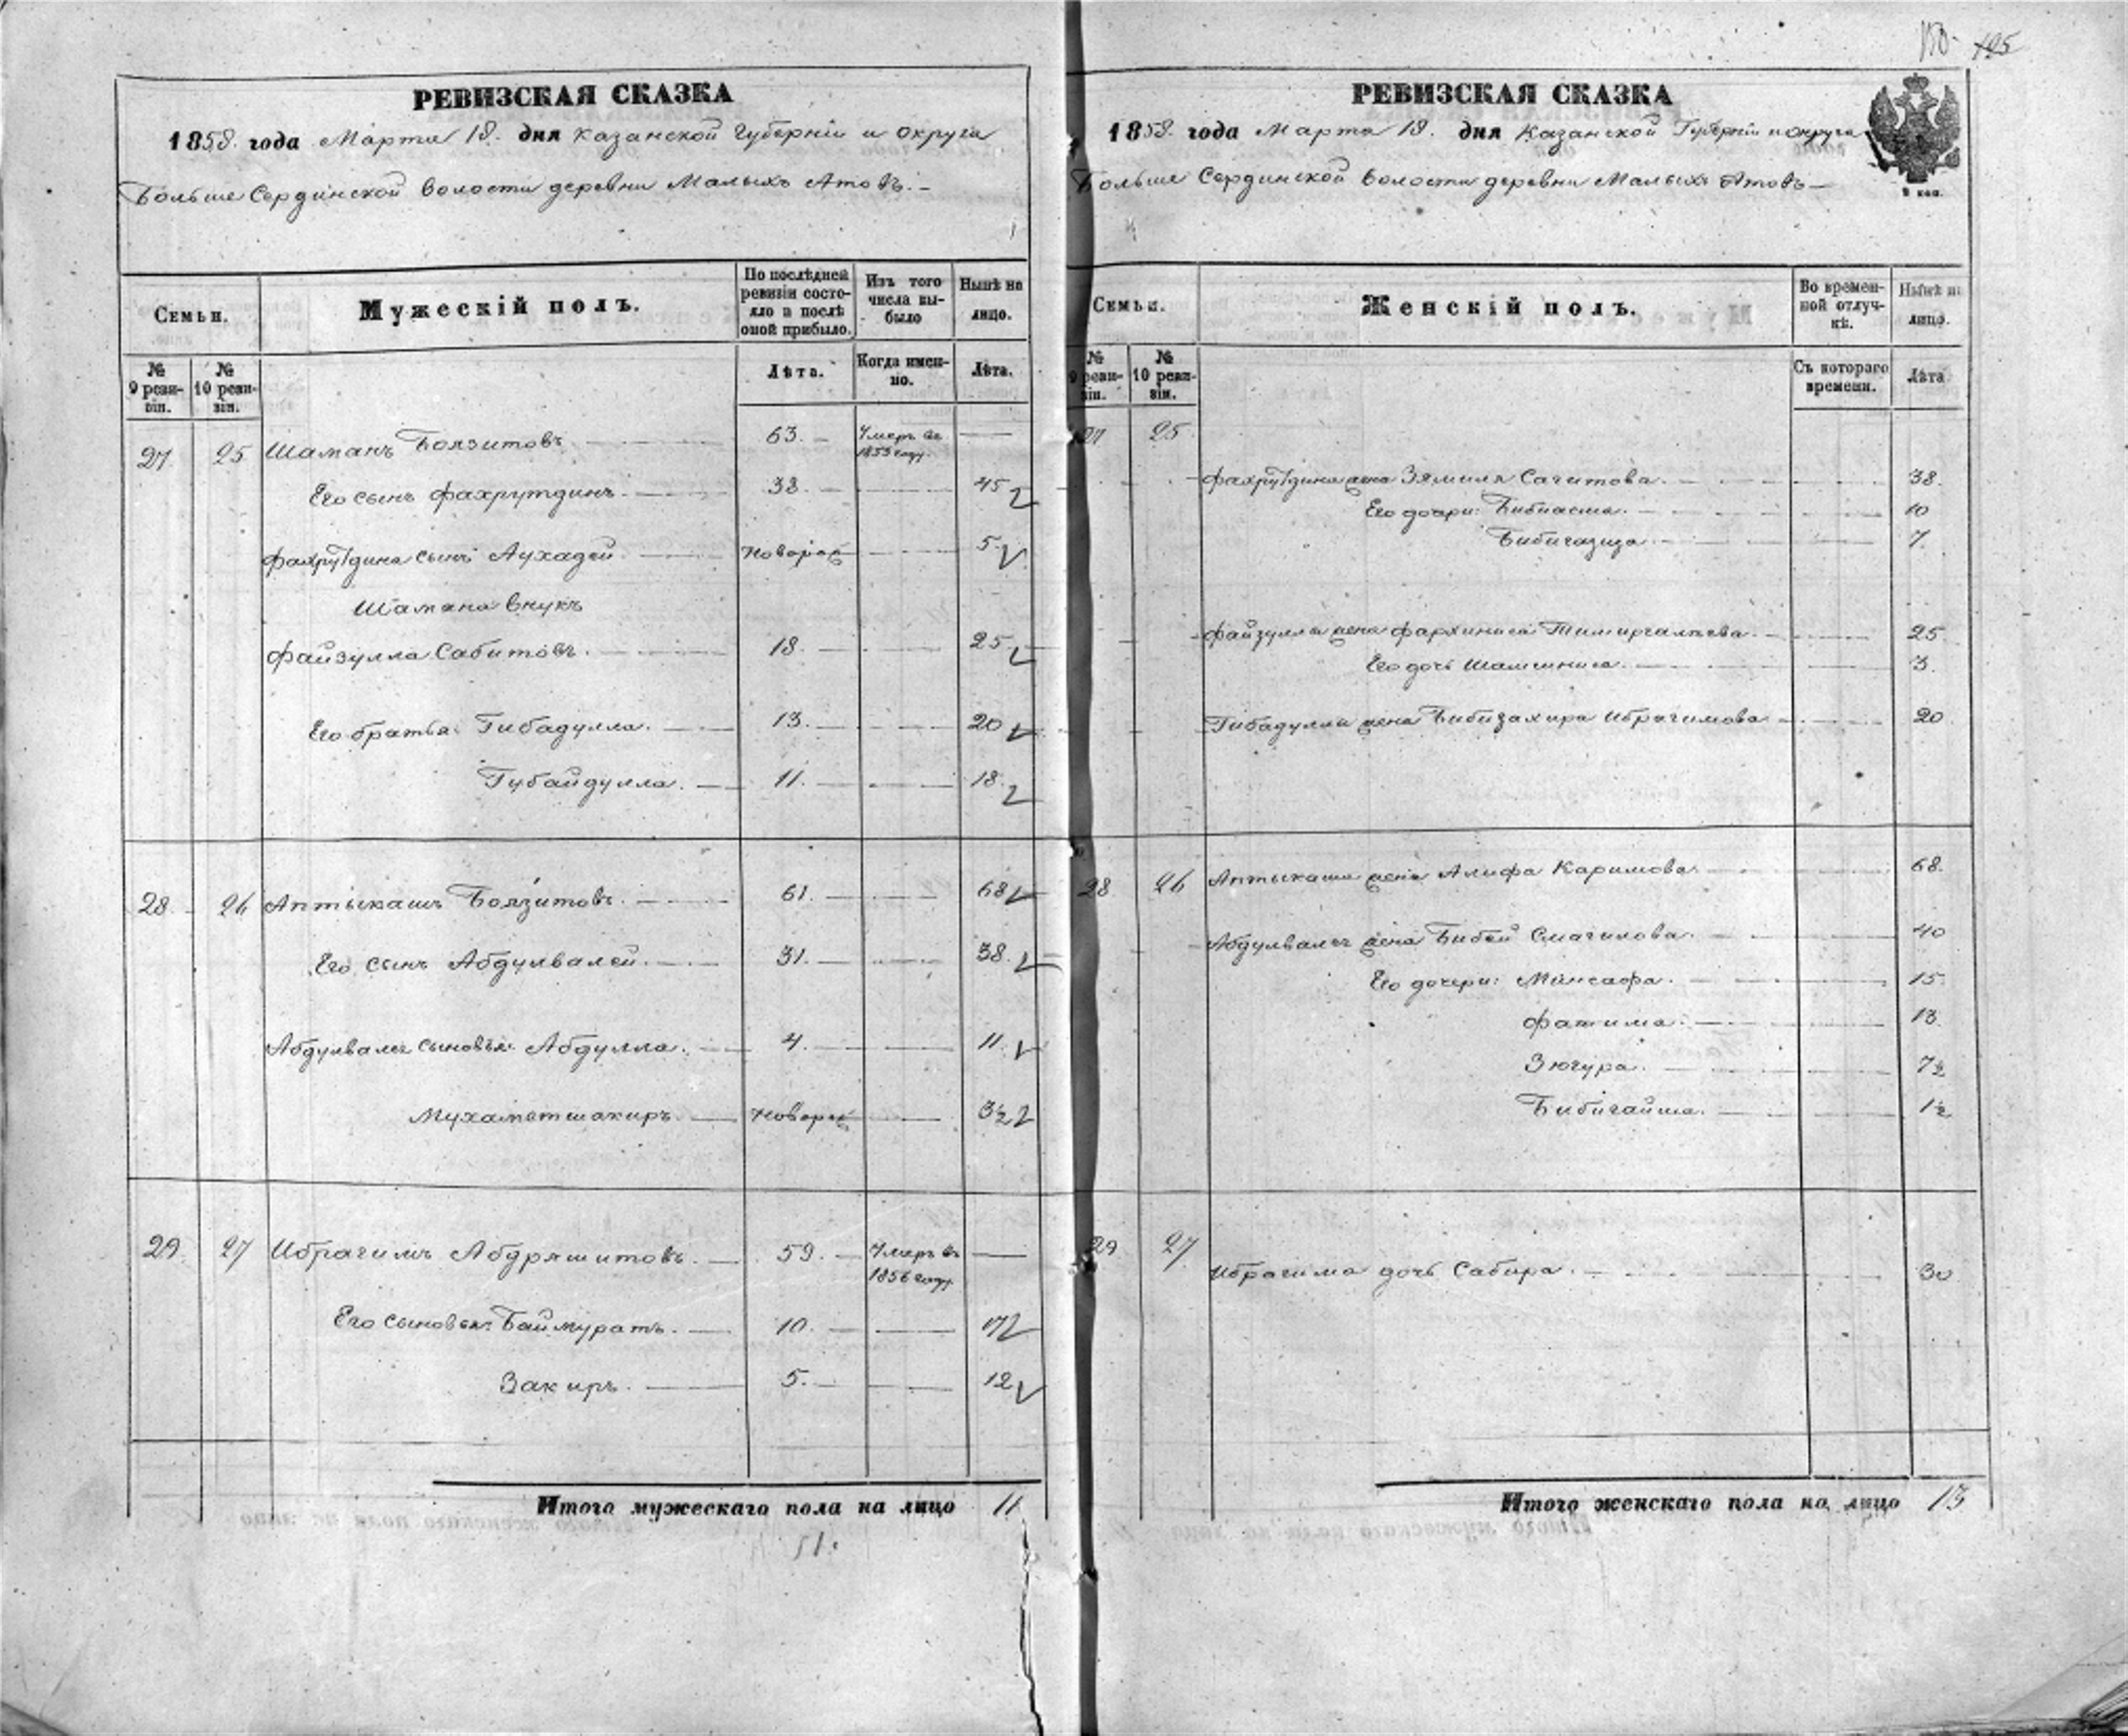 195
РЕВИЗСКАЯ СКАЗКА
1858. года Марта 18. дня Казанской Губерніи и округа
Больше Сердинской волости деревни Малыхъ Атовъ.
Семьи.
Мужескій полъ.
По послѣдней ревизіи состояло а послѣ оной прибыло.
Изъ того числа выбыло
Нынѣ на лицо.
№ 9 ревизіи.
№ 10 ревизіи.
Лѣта.
Когда именно.
Лѣта.
27 25 Шаманъ Боязитовъ 63. Умеръ въ 1853 году.
Его сынъ Фахрутдинъ 38. 45
Фахрутдина сынъ Аухадей новорож 5
Шамана внукъ
Файзулла Сабитовъ 18. 25
Его братья Гибадулла 13. 20
Губайдулла 11. 18
28 26 Аптыкашъ Боязитовъ 61. 68
Его сынъ Абдулвалей 31. 38
Абдулвалея сыновья: Абдулла. 4. 11
Мухаметшакиръ новорож 3½
29 27 Ибрагимъ Абдряшитовъ 59. Умеръ въ 1856 году.
Его сыновья: Баймуратъ. 10. 17
Закиръ 5. 12
Итого мужескаго пола на лицо 11.
РЕВИЗСКАЯ СКАЗКА
1858. года Марта 18. дня Казанской Губерніи и округа
Больше Сердинской волости деревни Малыхъ Атовъ
Семьи.
Женскій полъ.
Во временной отлучкѣ.
Нынѣ на лицо.
№ 9 ревизіи.
№ 10 ревизіи.
Съ котораго времени.
Лѣта
27 25
Фахрутдина жена Зямиля Сагитова 38.
Его дочери: Бибиасма 10
Бибигазиза 7.
Файзуллы жена Фархиниса Тимиргалеева 25
Его дочь Шамсиниса 3.
Гибадуллы жена Бибизахира Ибрагимова 20
28 26 Аптыкаша жена Алифа Каримова 68.
Абдулвалея жена Бибей Смагилова 40
Его дочери: Минсафа. 15
Фатима 13.
Зюгура. 7½
Бибигайша. 1½
29 27 Ибрагима дочь Сабира. 30
Итого женскаго пола на лицо 13